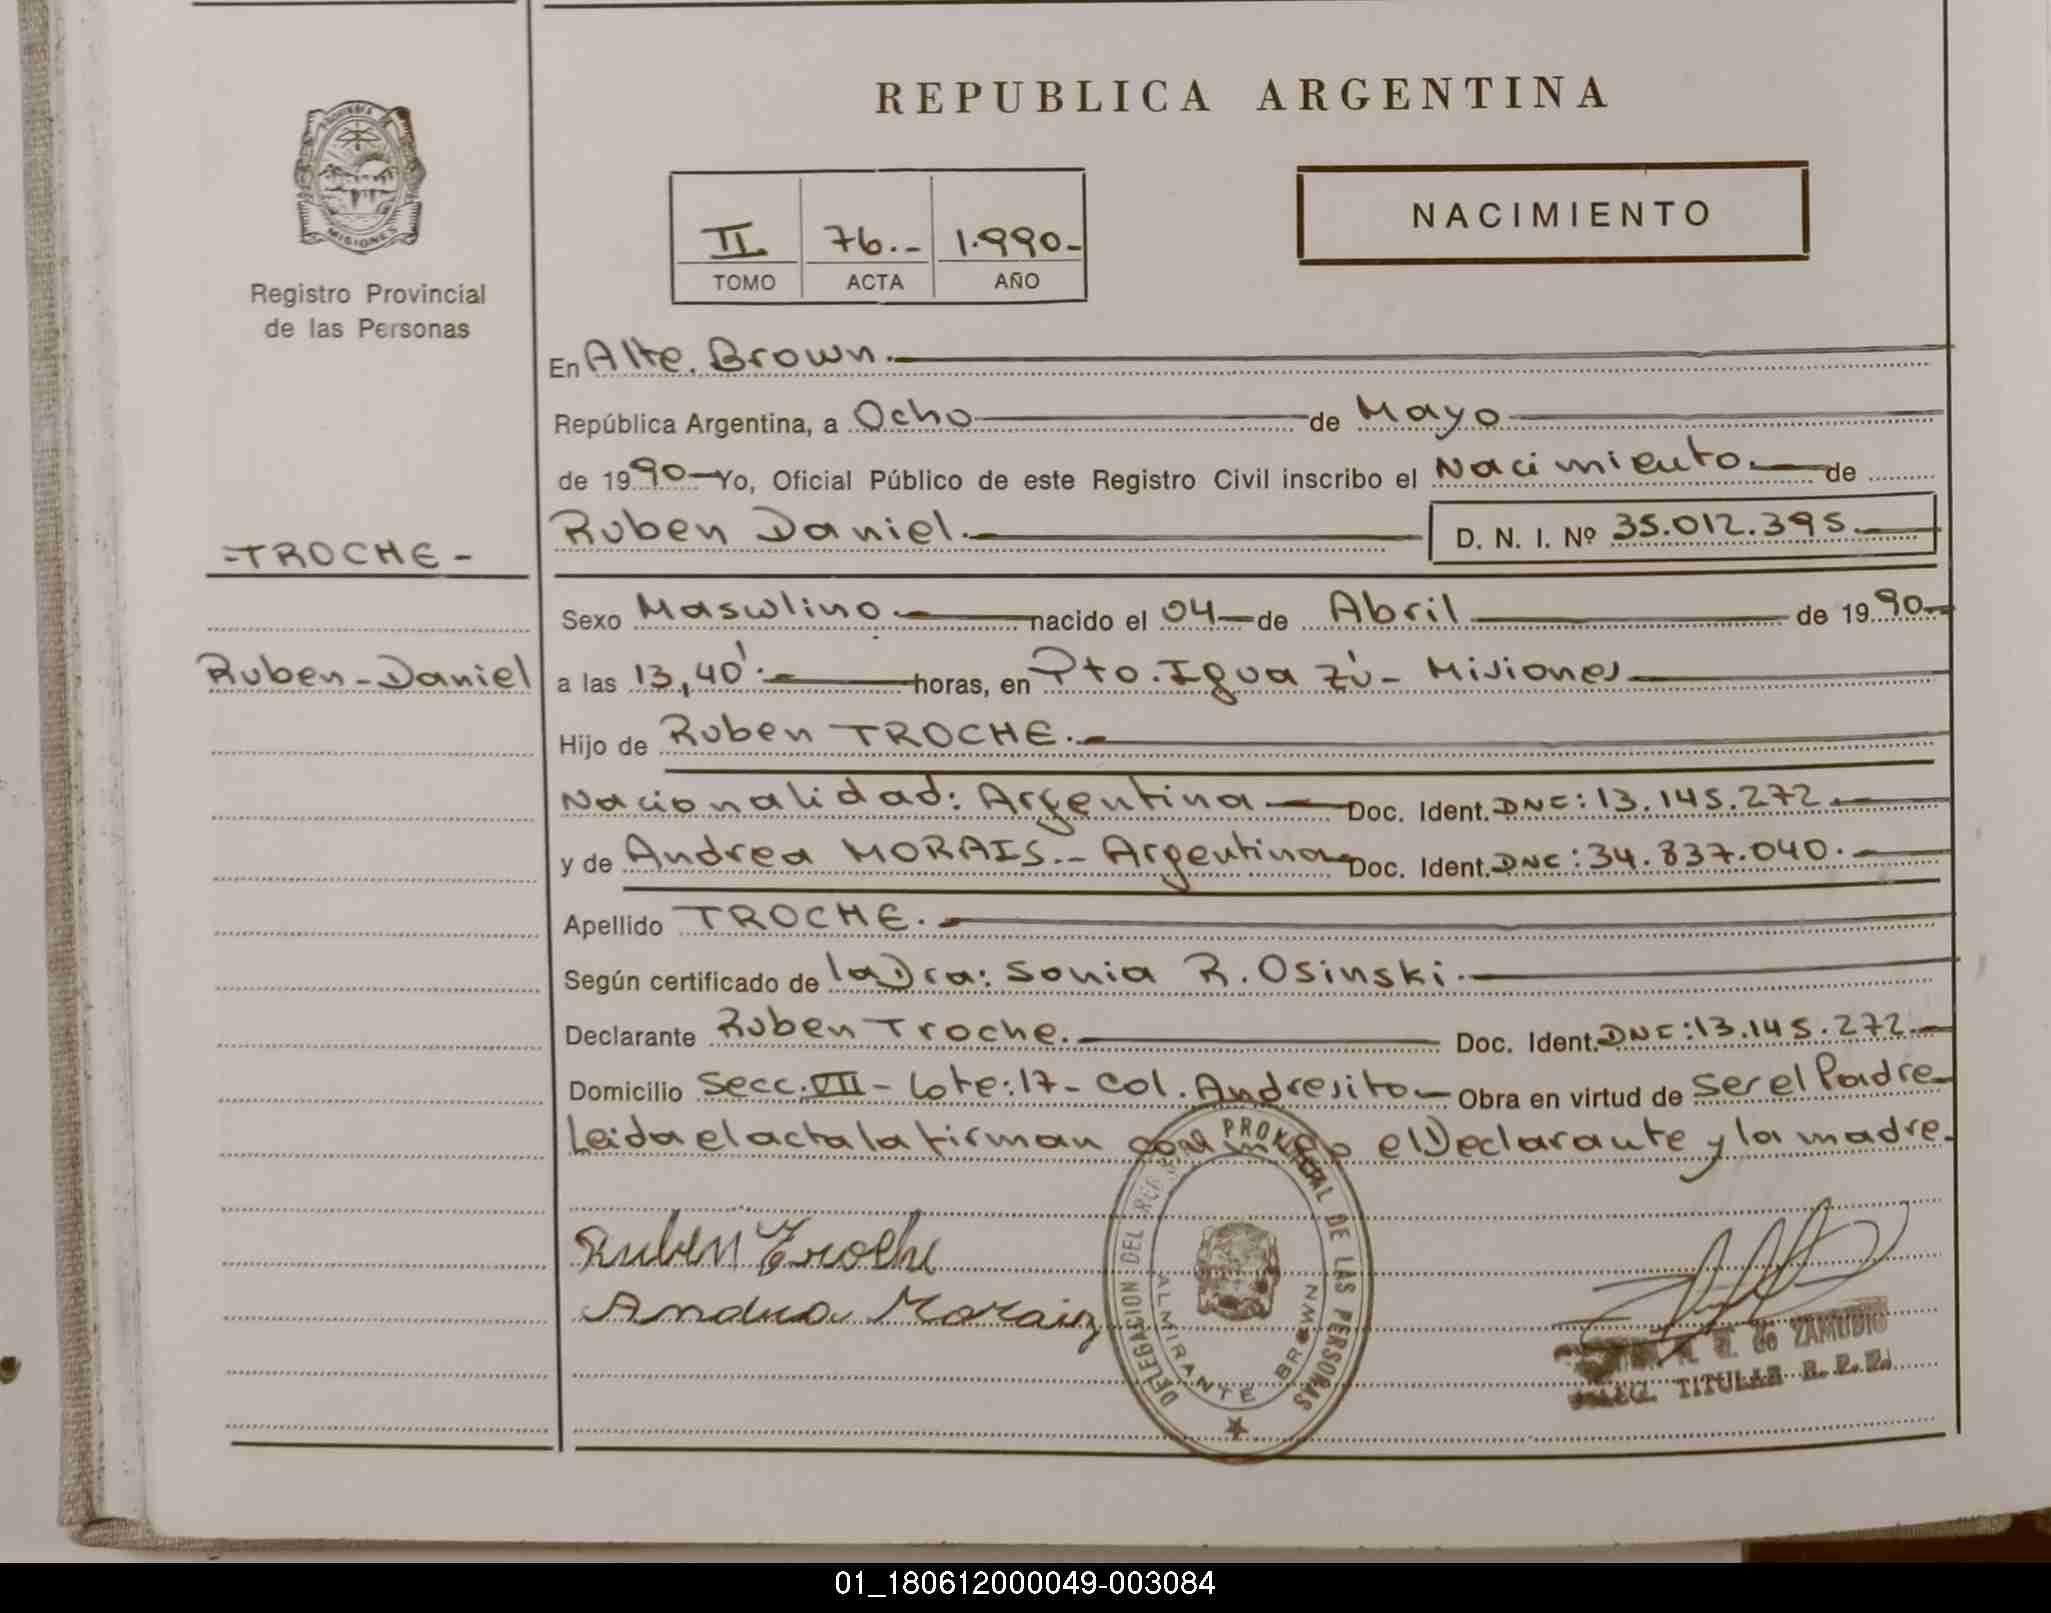 REPUBLICA ARGENTINA
MISIONES
Registro Provincial
de las Personas
II 76.- 1.990-
TOMO ACTA AÑO
NACIMIENTO
En Alte. Brown.
República Argentina, a Ocho de Mayo
de 1990 Yo, Oficial Público de este Registro Civil inscribo el Nacimiento de
Ruben Daniel. D. N. I. Nº 35.012.395.
-TROCHE-
Sexo Masculino nacido el 04 de Abril de 1990
Ruben-Daniel
a las 13,40' horas, en Pto. Iguazú - Misiones
Hijo de Ruben TROCHE.
Nacionalidad: Argentina Doc. Ident. DNI: 13.145.272
y de Andrea MORAIS.- Argentina Doc. Ident. DNI: 34.837.040.
Apellido TROCHE.
Según certificado de la Dra: Sonia R. Osinski.
Declarante Ruben Troche. Doc. Ident. DNI: 13.145.272
Domicilio Secc. VII - Lote: 17 - Col. Andresito Obra en virtud de ser el Padre
Leida el acta la firman conmigo el Declarante y la madre.
Ruben Troche
Andrea Moraiz
DELEGACION DEL REG. PROVINCIAL DE LAS PERSONAS
ALMIRANTE BROWN
de ZAMUDIO
TITULAR R. P. P.
01_180612000049-003084